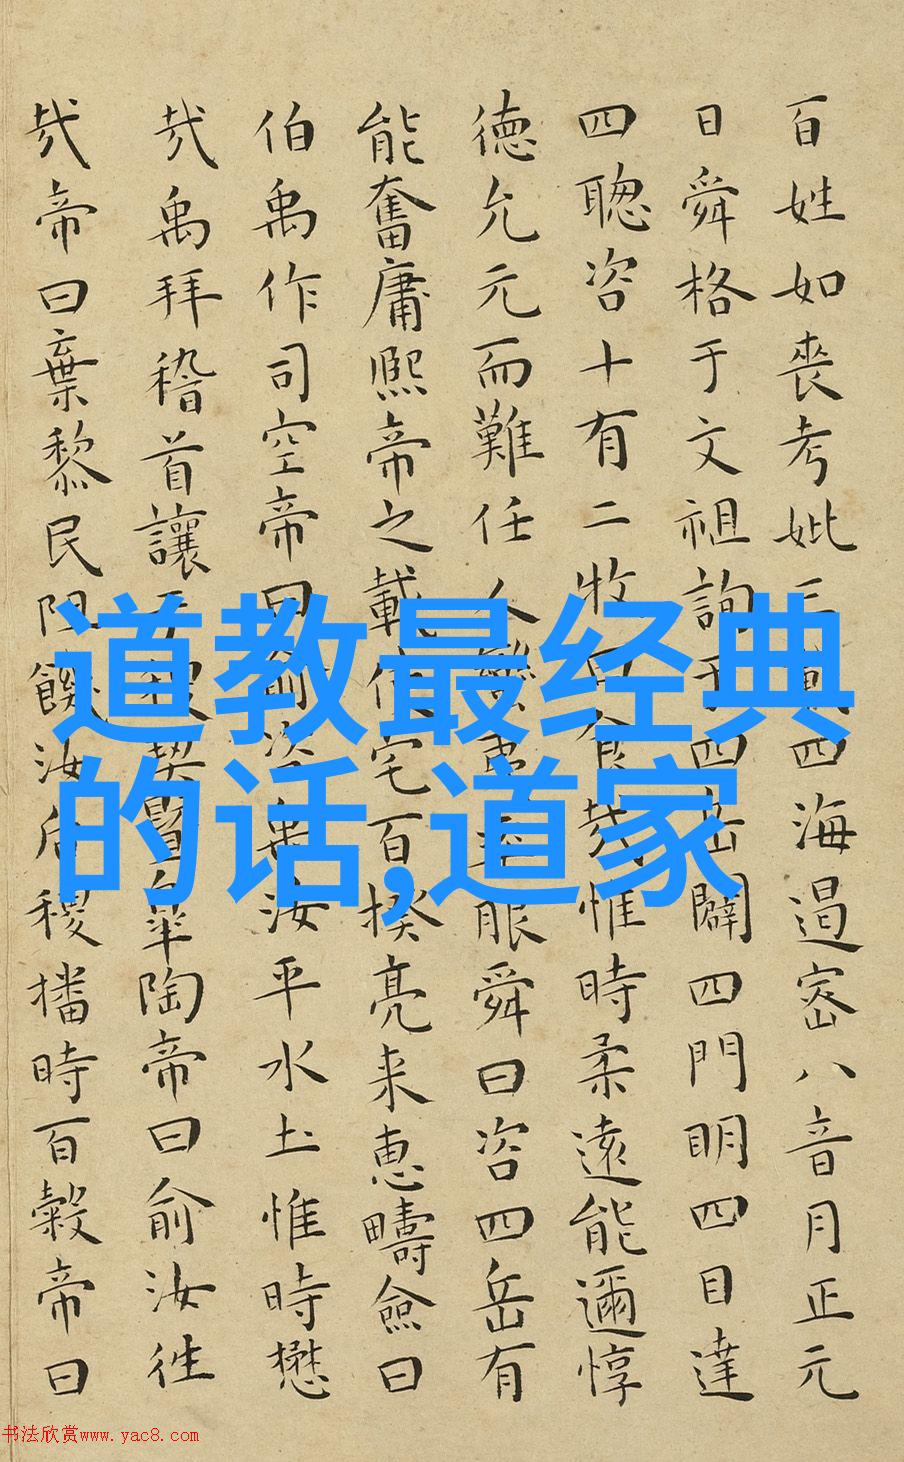 百姓如喪考妣三載四海遏密八音月正元
日舜格于文祖詢于四岳闢四門明四目達
四聡咨十有二牧曰食哉惟時柔遠能邇惇
徳允元而難任人蠻夷率服舜曰咨四岳有
能奮庸熙帝之載使宅百揆亮来恵疇僉曰
伯禹作司空帝曰俞咨禹汝平水土惟時懋
哉禹拜稽首讓于稷契暨皐陶帝曰俞汝徃
哉帝曰棄黎民阻饑汝后稷播時百穀帝曰
道教最经典
的话,道家
书法欣赏www.yac8.com